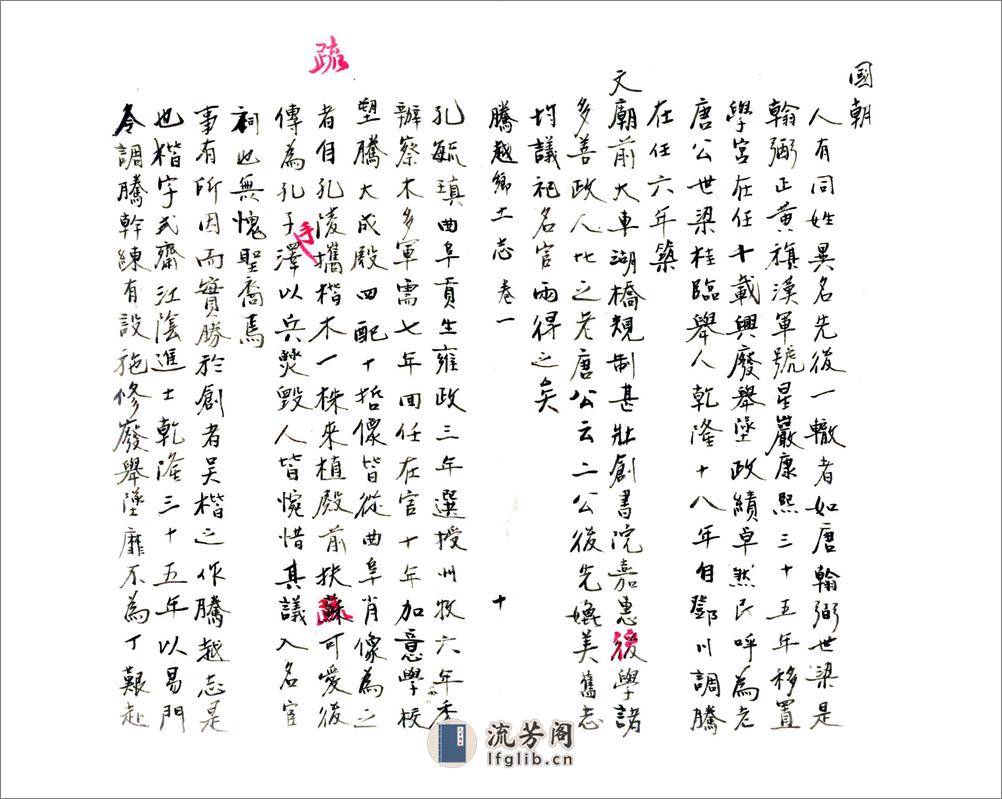 國朝
人有同姓異名先後一轍者如唐翰弼世梁是
翰弼正黄旗漢軍號星巖康熙三十五年移置
學宮在任十載興廢舉墜政績卓然民呼為老
唐公世梁桂臨舉人乾隆十八年自鄧川調騰
在任六年築
文廟前大車湖橋規制甚壯創書院嘉惠後學諸
多善政人比之老唐公云二公後先媲美舊志
均議祀名宦兩得之矣
騰越鄉土志 卷一
十
孔毓瑱曲阜貢生雍政三年選授州牧六年委
辦察木多軍需七年回任在官十年加意學校
塑騰大成殿四配十哲像皆從曲阜肖像為之
者自孔陵攜楷木一株來植殿前扶蘇可愛後
疏
疏
傳為孔子手澤以兵燹毀人皆惋惜其議入名宦
祠也無愧聖裔焉
事有所因而實勝於創者吴楷之作騰越志是
也楷字式齋江陰進士乾隆三十五年以易門
令調騰幹練有設施修廢舉墜靡不為丁艱赴
流芳阁
lfglib.cn